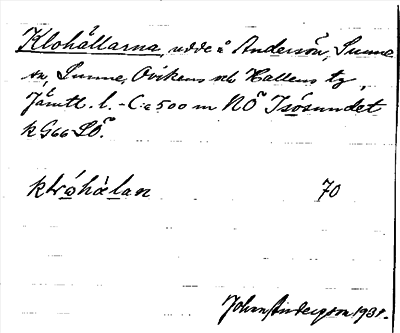 Klohällarna, udde å Andersön, Sunne
sn, Sunne, Ovikens och Hallens tg,
Jämtl. l. - C:a 500 m NÖ Isösundet
k G66 SÖ.
70
John Anderson 1931.